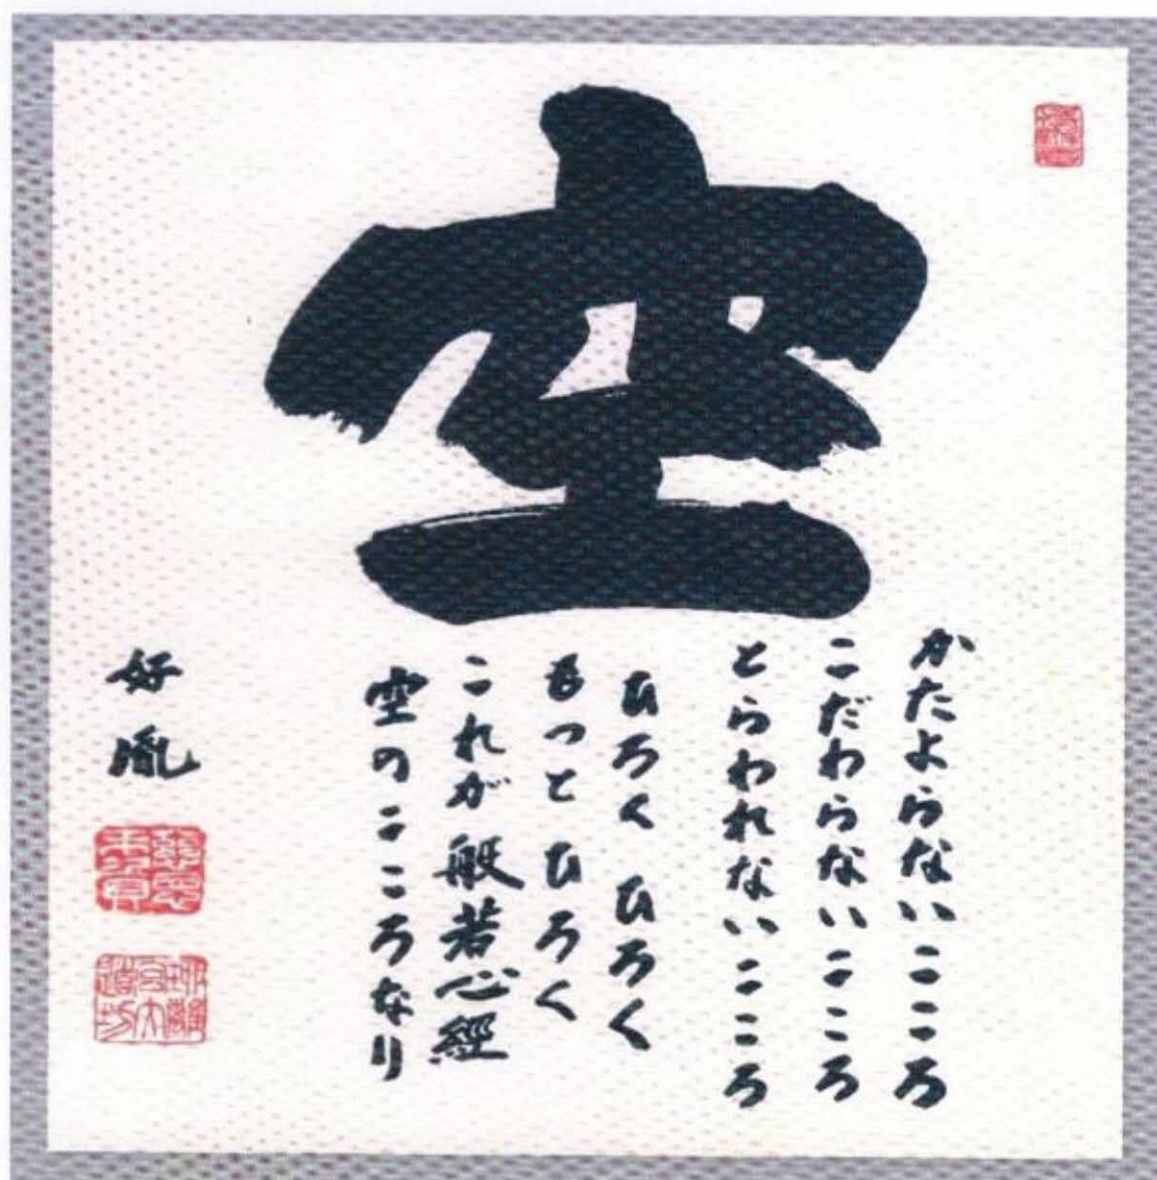 空
かたよらないこころ
こだわらないこころ
とらわれないこころ
ひろく ひろく
もっと ひろく
これが般若心經
空のこころなり
好胤